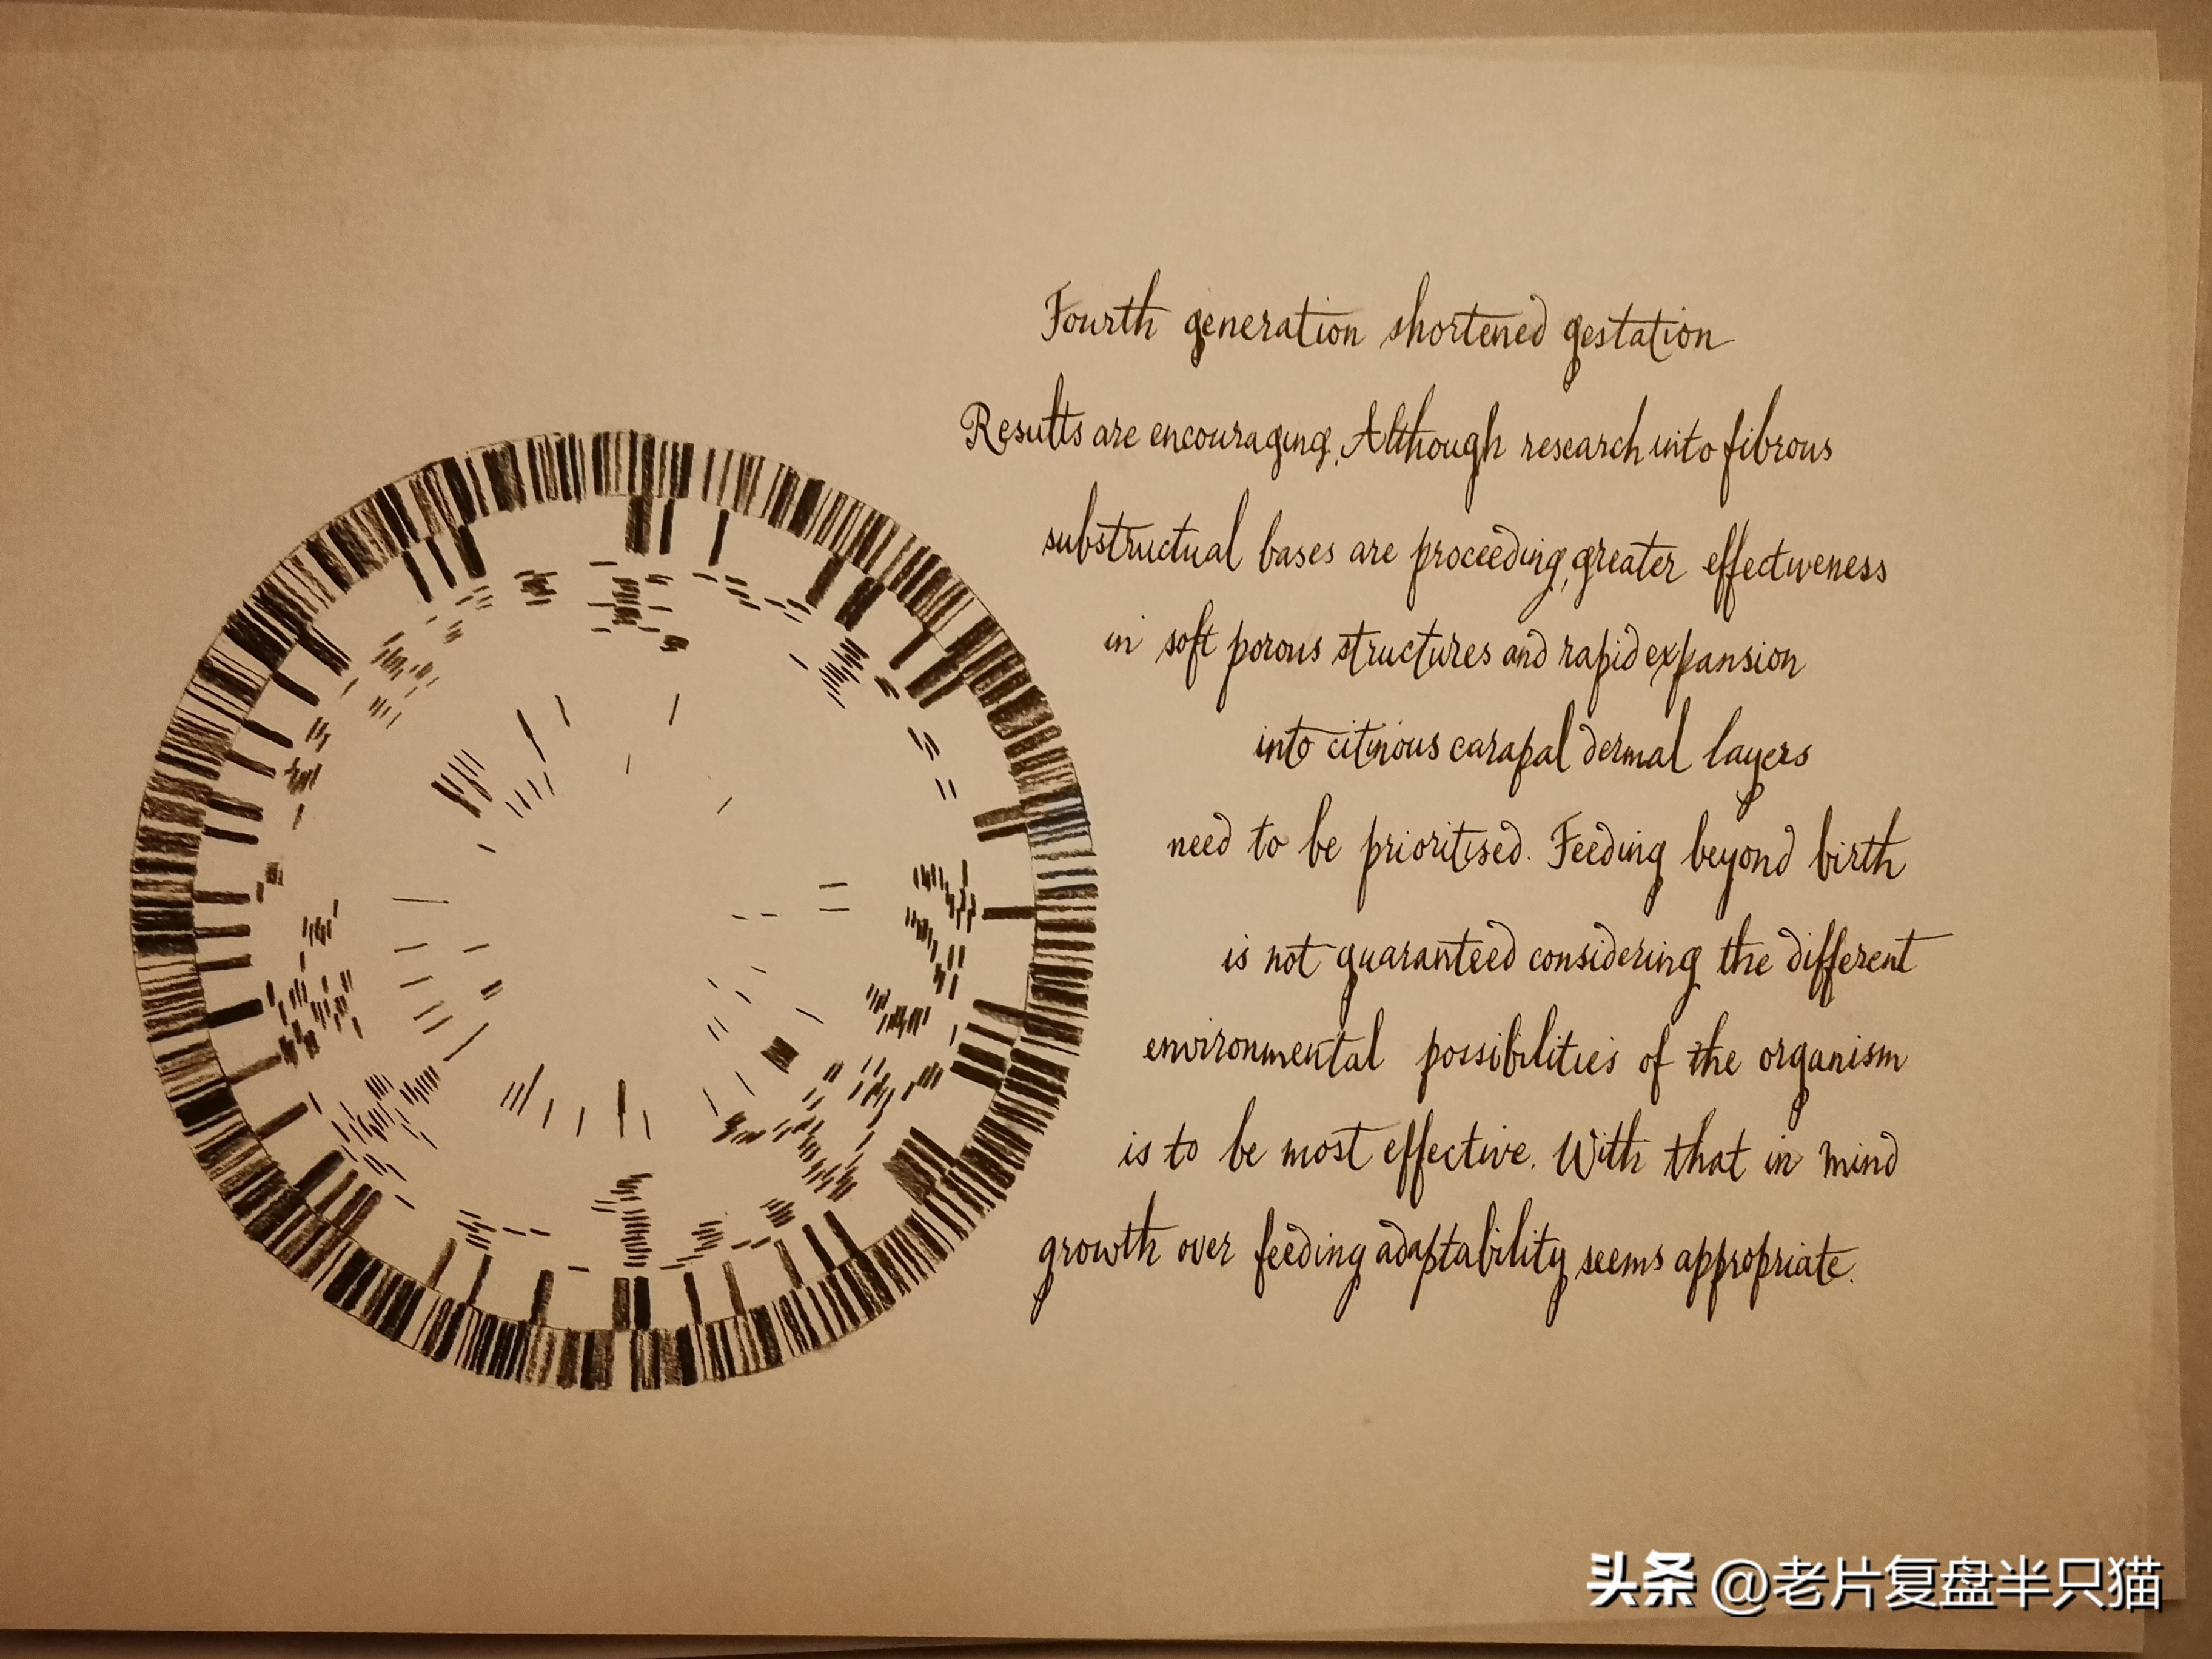 Fourth generation shortened gestation
Results are encouraging. Although research into fibrous
substructual bases are proceeding, greater effectiveness
in soft porous structures and rapid expansion
into citinous carapal dermal layers
need to be prioritised. Feeding beyond birth
is not guaranteed considering the different
environmental possibilities of the organism
is to be most effective. With that in mind
growth over feeding adaptability seems appropriate.
头条 @老片复盘半只猫